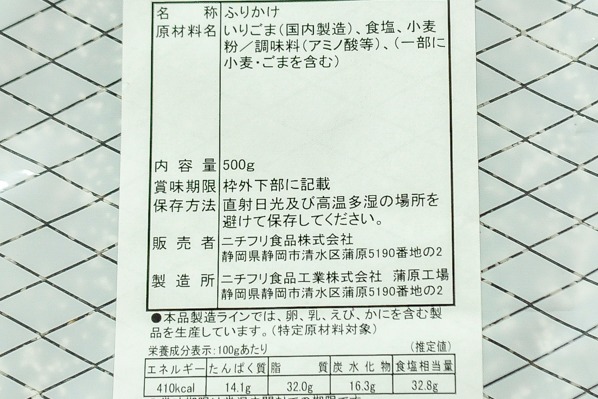 名称 ふりかけ
原材料名 いりごま(国内製造)、食塩、小麦
粉／調味料(アミノ酸等)、(一部に
小麦・ごまを含む)
内容量 500g
賞味期限 枠外下部に記載
保存方法 直射日光及び高温多湿の場所を
避けて保存してください。
販売者 ニチフリ食品株式会社
静岡県静岡市清水区蒲原5190番地の2
製造所 ニチフリ食品工業株式会社 蒲原工場
静岡県静岡市清水区蒲原5190番地の2
●本品製造ラインでは、卵、乳、えび、かにを含む製
品を生産しています。(特定原材料対象)
栄養成分表示:100gあたり (推定値)
エネルギー たんぱく質 脂質 炭水化物 食塩相当量
410kcal 14.1g 32.0g 16.3g 32.8g